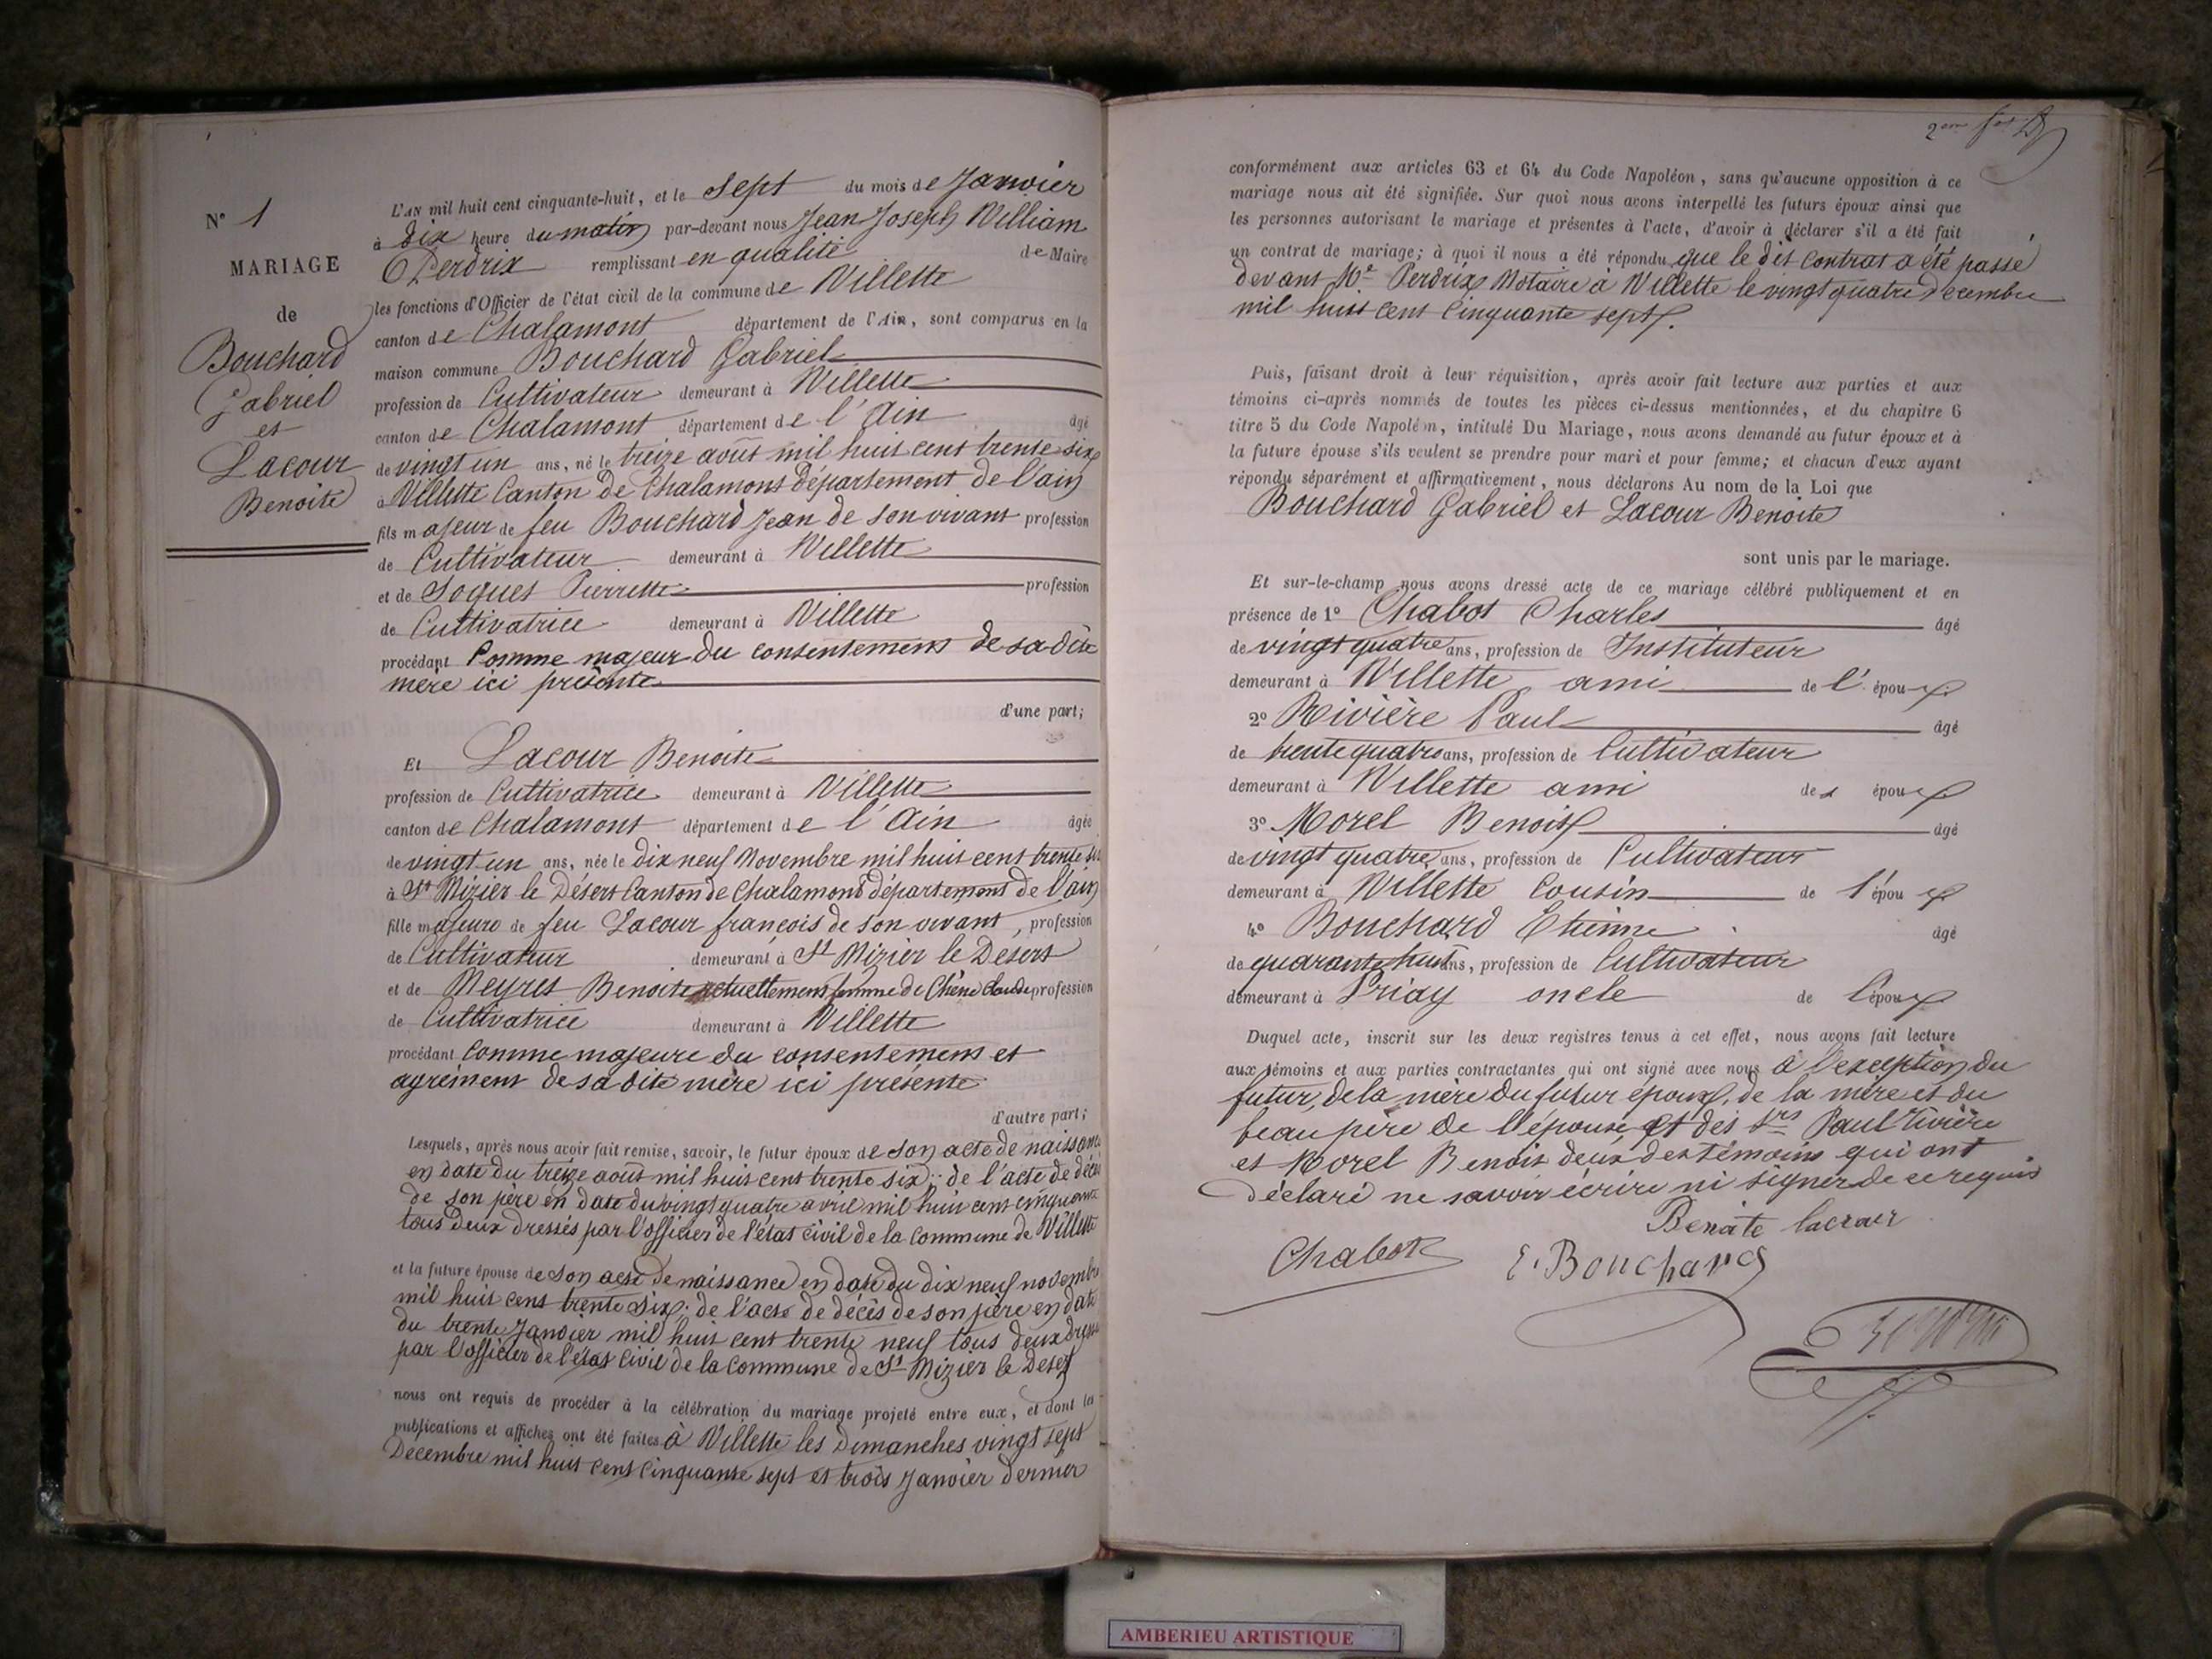 N° 1
MARIAGE
de
Bouchard
Gabriel
et
Lacour
Benoite
L'AN mil huit cent cinquante-huit, et le sept du mois de Janvier
à dix heure du matin par-devant nous Jean Joseph William
Perdrix remplissant en qualité de Maire
les fonctions d'Officier de l'état civil de la commune de Villette
canton de Chalamont département de l'Ain, sont comparus en la
maison commune Bouchard Gabriel
profession de Cultivateur demeurant à Villette
canton de Chalamont département de l'Ain âgé
de vingt un ans, né le treize août mil huit cent trente six
à Villette Canton de Chalamont département de l'ain
fils majeur de feu Bouchard Jean de son vivant profession
de Cultivateur demeurant à Villette
et de Soquet Pierrette profession
de Cultivatrice demeurant à Villette
procédant Comme majeur du consentement de sa dite
mère ici présente
d'une part;
Et Lacour Benoite
profession de Cultivatrice demeurant à Villette
canton de Chalamont département de l'Ain âgée
de vingt un ans, née le dix neuf Novembre mil huit cent trente six
à St Nizier le Désert Canton de Chalamont département de l'ain
fille majeure de feu Lacour françois de son vivant, profession
de Cultivateur demeurant à St Nizier le Desert
et de Meyret Benoite actuellement femme de Chêne Claude profession
de Cultivatrice demeurant à Villette
procédant Comme majeure du consentement et
agrément de sa dite mère ici présente
d'autre part;
Lesquels, après nous avoir fait remise, savoir, le futur époux de son acte de naissance
en date du treize août mil huit cent trente six; de l'acte de décès
de son père en date du vingt quatre avril mil huit cent cinquante
tous deux dressés par l'officier de l'état civil de la Commune de Villette
et la future épouse de son acte de naissance en date du dix neuf novembre
mil huit cent trente six; de l'acte de décès de son père en date
du trente Janvier mil huit cent trente neuf tous deux dressés
par l'officier de l'état civil de la Commune de St Nizier le Desert
nous ont requis de procéder à la célébration du mariage projeté entre eux, et dont les
publications et affiches ont été faites à Villette les Dimanches vingt sept
Decembre mil huit cent cinquante sept et trois Janvier dernier
conformément aux articles 63 et 64 du Code Napoléon, sans qu'aucune opposition à ce
mariage nous ait été signifiée. Sur quoi nous avons interpellé les futurs époux ainsi que
les personnes autorisant le mariage et présentes à l'acte, d'avoir à déclarer s'il a été fait
un contrat de mariage; à quoi il nous a été répondu que le dit contrat a été passé
devant Me Perdrix Notaire à Villette le vingt quatre décembre
mil huit cent cinquante sept.
Puis, faisant droit à leur réquisition, après avoir fait lecture aux parties et aux
témoins ci-après nommés de toutes les pièces ci-dessus mentionnées, et du chapitre 6
titre 5 du Code Napoléon, intitulé Du Mariage, nous avons demandé au futur époux et à
la future épouse s'ils veulent se prendre pour mari et pour femme; et chacun d'eux ayant
répondu séparément et affirmativement, nous déclarons Au nom de la Loi que
Bouchard Gabriel et Lacour Benoite
sont unis par le mariage.
Et sur-le-champ nous avons dressé acte de ce mariage célébré publiquement et en
présence de 1° Chabot Charles âgé
de vingt quatre ans, profession de Instituteur
demeurant à Villette ami de l'époux
2° Rivière Paul âgé
de trente quatre ans, profession de Cultivateur
demeurant à Villette ami des époux
3° Morel Benoit âgé
de vingt quatre ans, profession de Cultivateur
demeurant à Villette Cousin de l'époux
4° Bouchard Etienne âgé
de quarante huit ans, profession de Cultivateur
demeurant à Priay oncle de l'époux
Duquel acte, inscrit sur les deux registres tenus à cet effet, nous avons fait lecture
aux témoins et aux parties contractantes qui ont signé avec nous à l'exception du
futur, de la mère du futur époux, de la mère et du
beau père de l'épouse et des Srs Paul Rivière
et Morel Benoit deux des témoins qui ont
déclaré ne savoir écrire ni signer de ce requis
Benate lacrour
Chabot
E. Bouchard
AMBERIEU ARTISTIQUE